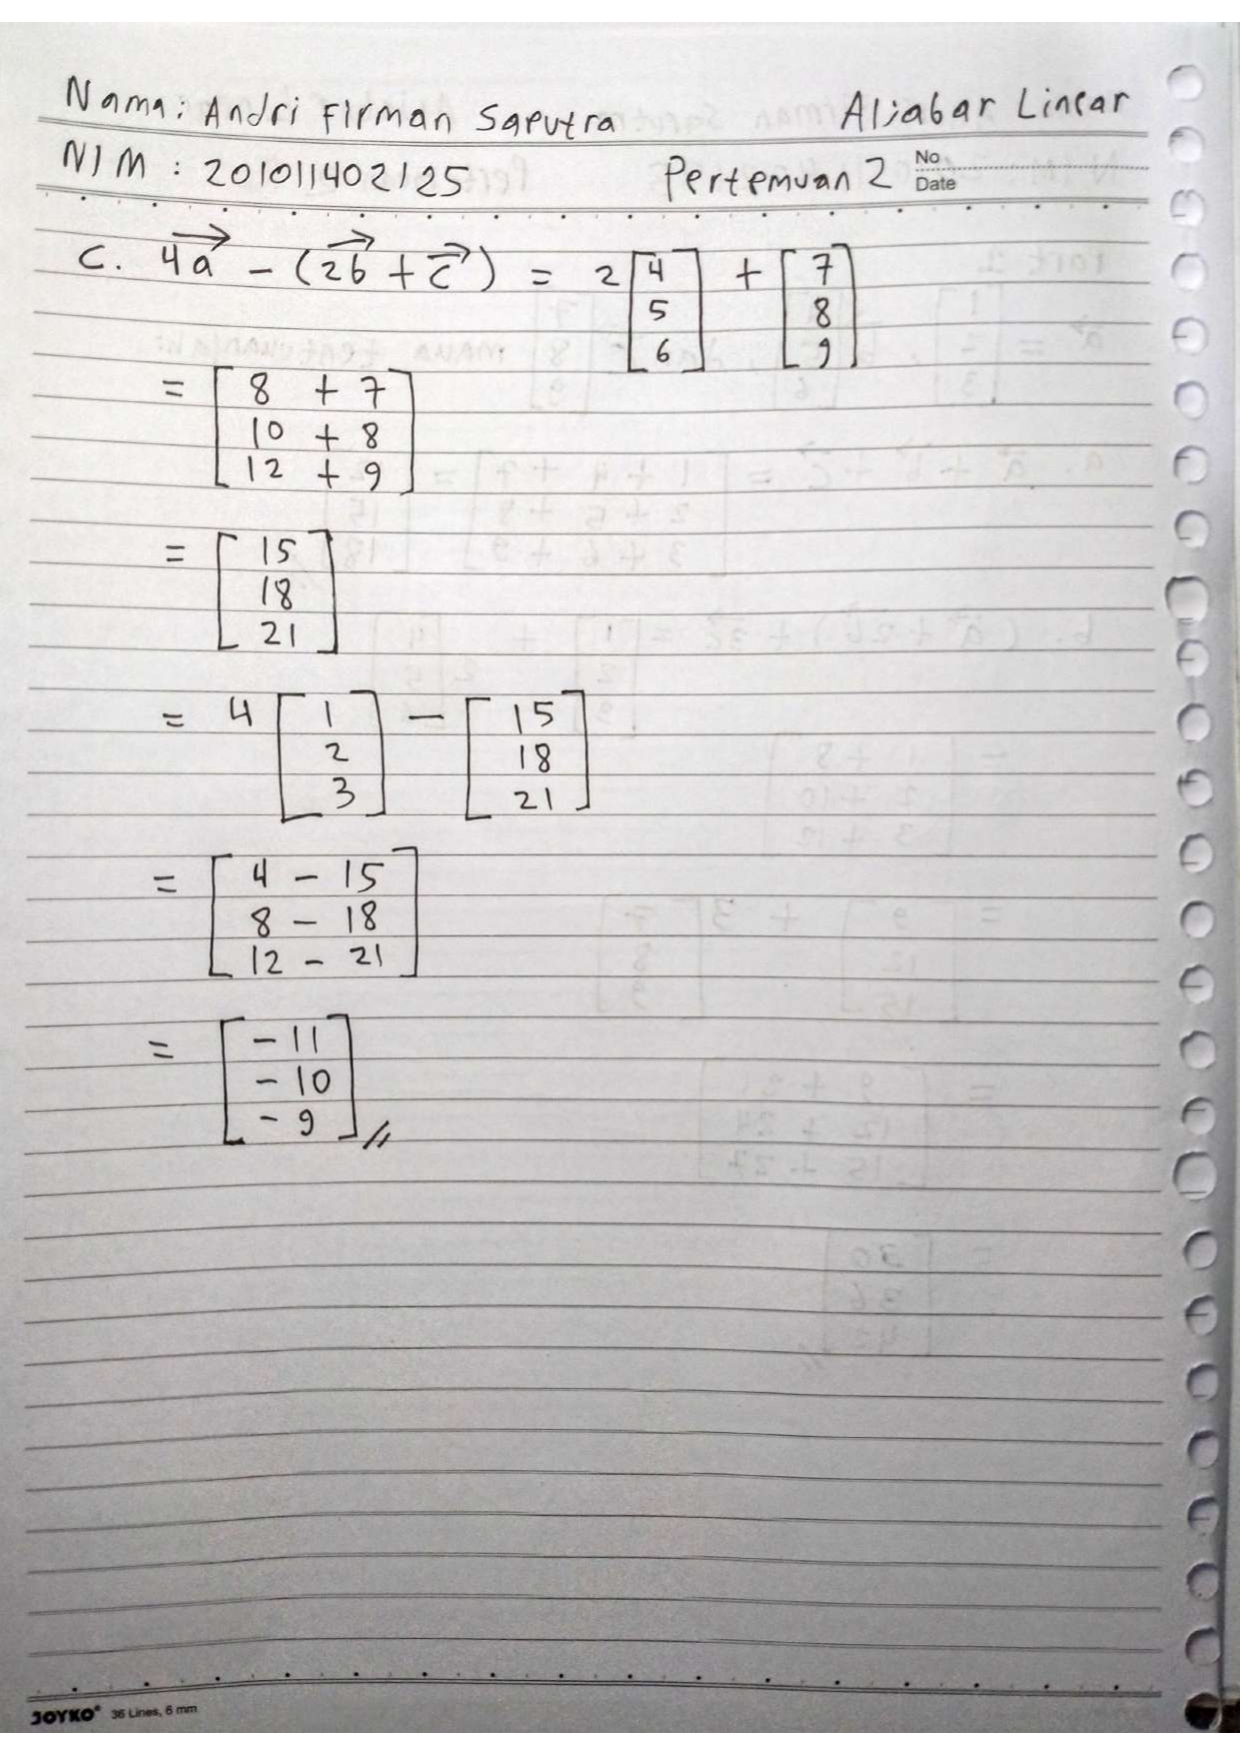 Nama: Andri Firman Saputra Aljabar Linear
NIM : 201011402125 Pertemuan 2 No
Date
C. 4a - (2b + c) = 2 [4 5 6] + [7 8 9]
= [8 + 7
10 + 8
12 + 9]
= [15
18
21]
= 4 [1 2 3] - [15 18 21]
= [4 - 15
8 - 18
12 - 21]
= [-11
-10
-9] //
JOYKO® 36 Lines, 6 mm